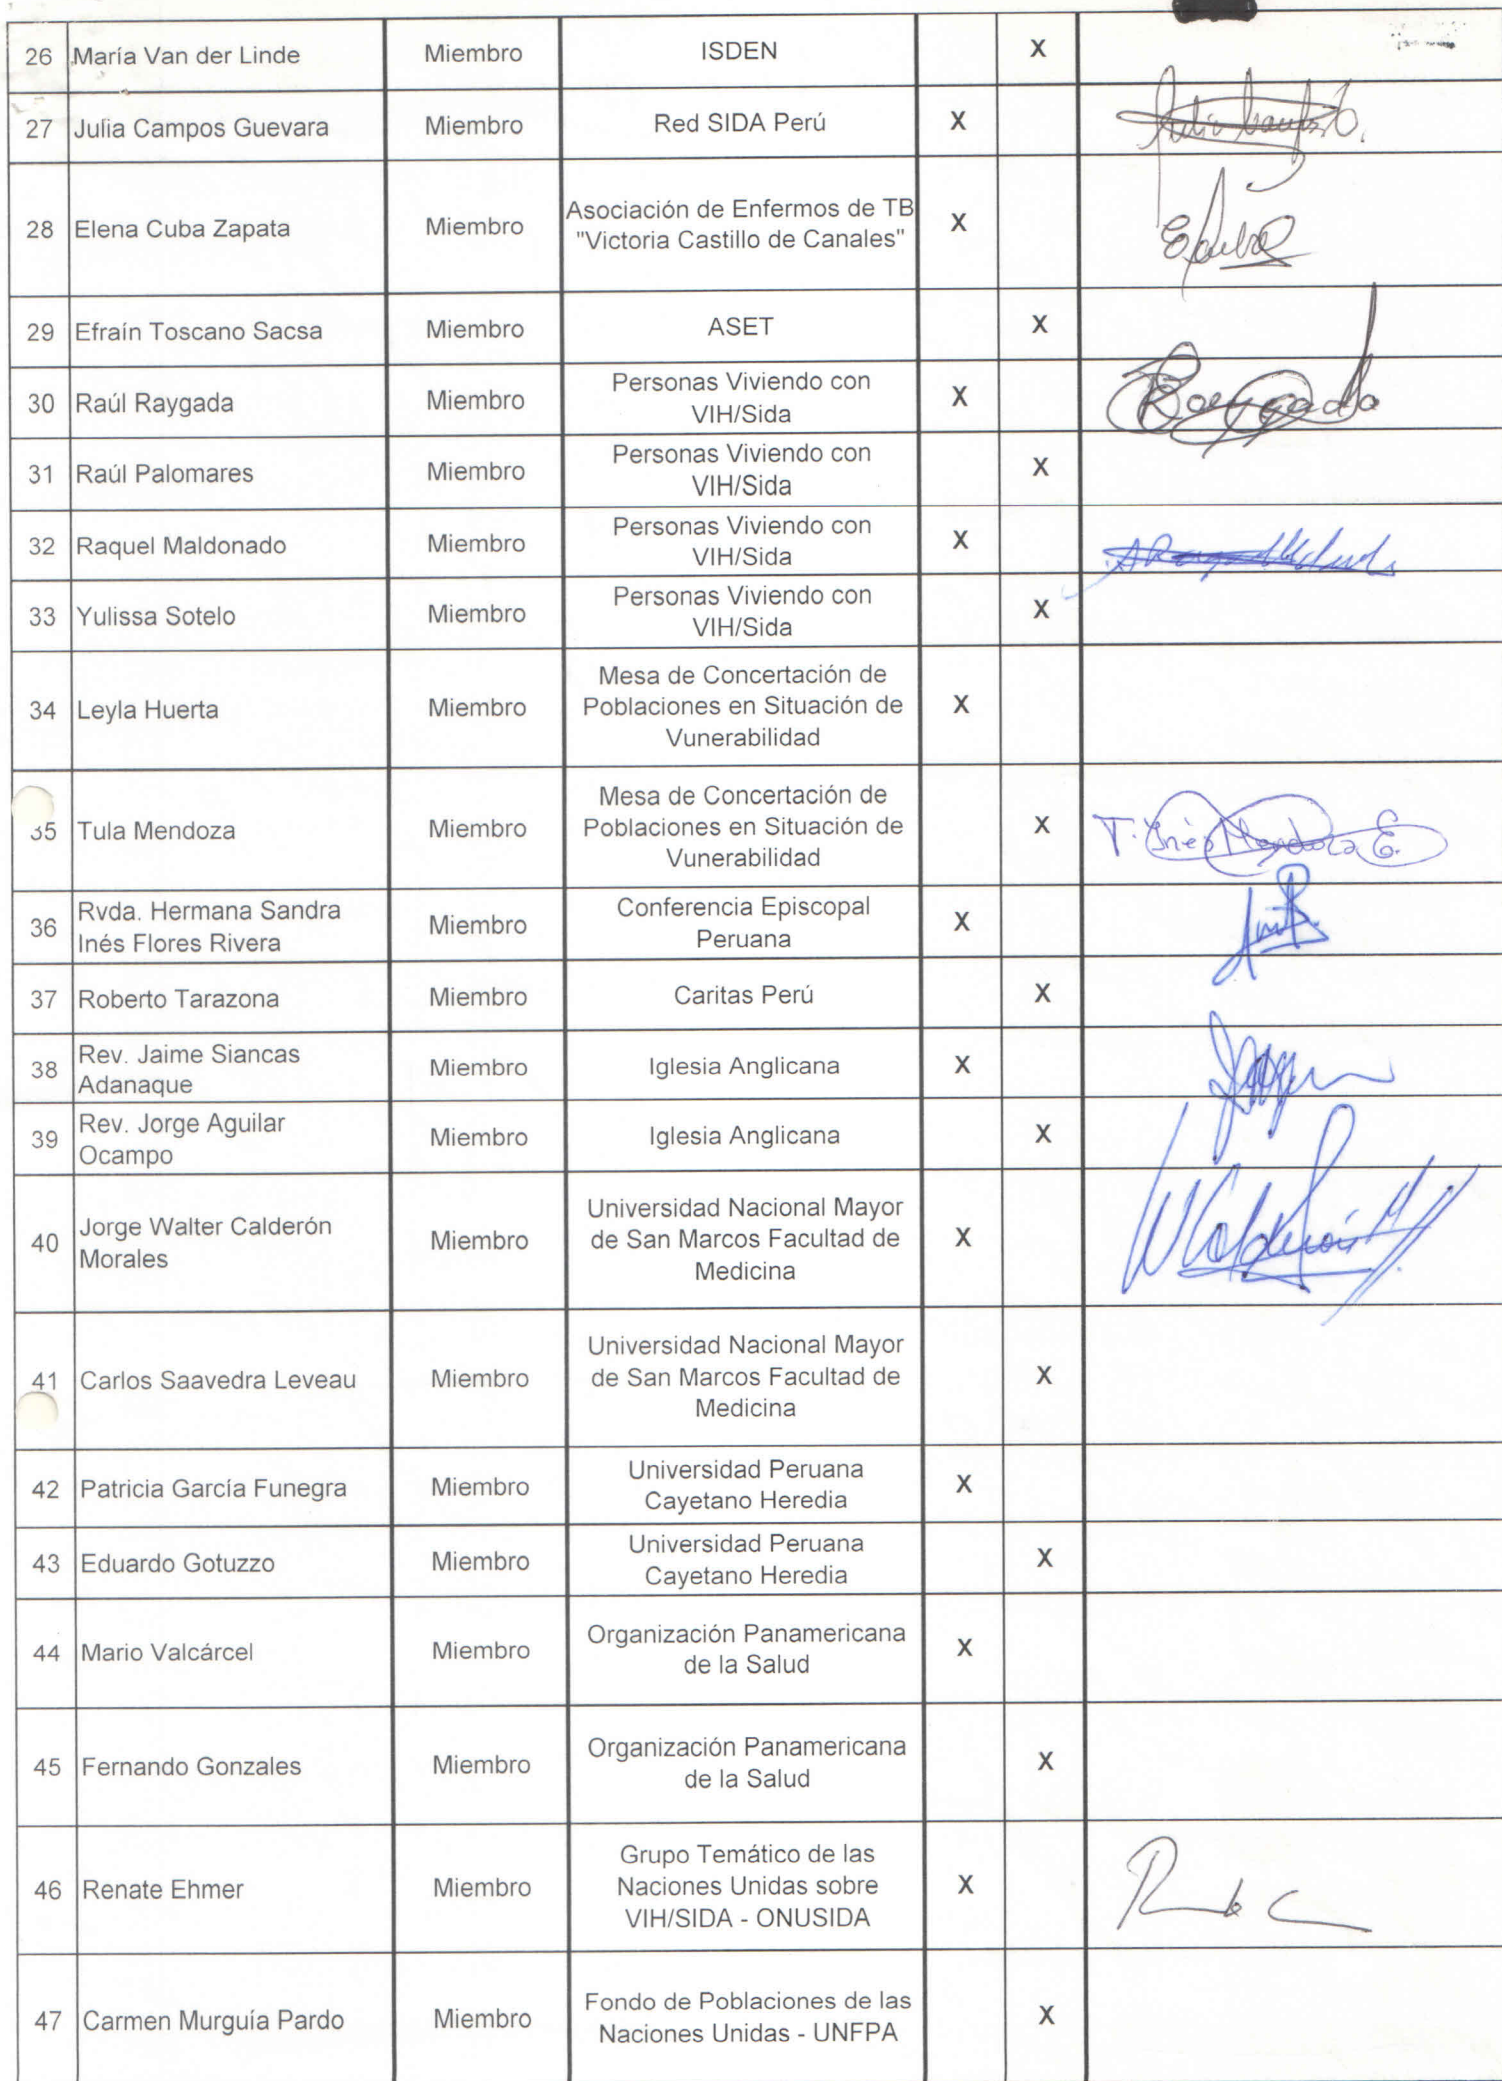 26 María Van der Linde Miembro ISDEN X
27 Julia Campos Guevara Miembro Red SIDA Perú X
28 Elena Cuba Zapata Miembro Asociación de Enfermos de TB
"Victoria Castillo de Canales" X
29 Efraín Toscano Sacsa Miembro ASET X
30 Raúl Raygada Miembro Personas Viviendo con
VIH/Sida X
Raygada
31 Raúl Palomares Miembro Personas Viviendo con
VIH/Sida X
32 Raquel Maldonado Miembro Personas Viviendo con
VIH/Sida X
33 Yulissa Sotelo Miembro Personas Viviendo con
VIH/Sida X
34 Leyla Huerta Miembro Mesa de Concertación de
Poblaciones en Situación de
Vunerabilidad X
35 Tula Mendoza Miembro Mesa de Concertación de
Poblaciones en Situación de
Vunerabilidad X
T. Inés Mendoza E.
36 Rvda. Hermana Sandra
Inés Flores Rivera Miembro Conferencia Episcopal
Peruana X
37 Roberto Tarazona Miembro Caritas Perú X
38 Rev. Jaime Siancas
Adanaque Miembro Iglesia Anglicana X
39 Rev. Jorge Aguilar
Ocampo Miembro Iglesia Anglicana X
40 Jorge Walter Calderón
Morales Miembro Universidad Nacional Mayor
de San Marcos Facultad de
Medicina X
41 Carlos Saavedra Leveau Miembro Universidad Nacional Mayor
de San Marcos Facultad de
Medicina X
42 Patricia García Funegra Miembro Universidad Peruana
Cayetano Heredia X
43 Eduardo Gotuzzo Miembro Universidad Peruana
Cayetano Heredia X
44 Mario Valcárcel Miembro Organización Panamericana
de la Salud X
45 Fernando Gonzales Miembro Organización Panamericana
de la Salud X
46 Renate Ehmer Miembro Grupo Temático de las
Naciones Unidas sobre
VIH/SIDA - ONUSIDA X
47 Carmen Murguía Pardo Miembro Fondo de Poblaciones de las
Naciones Unidas - UNFPA X